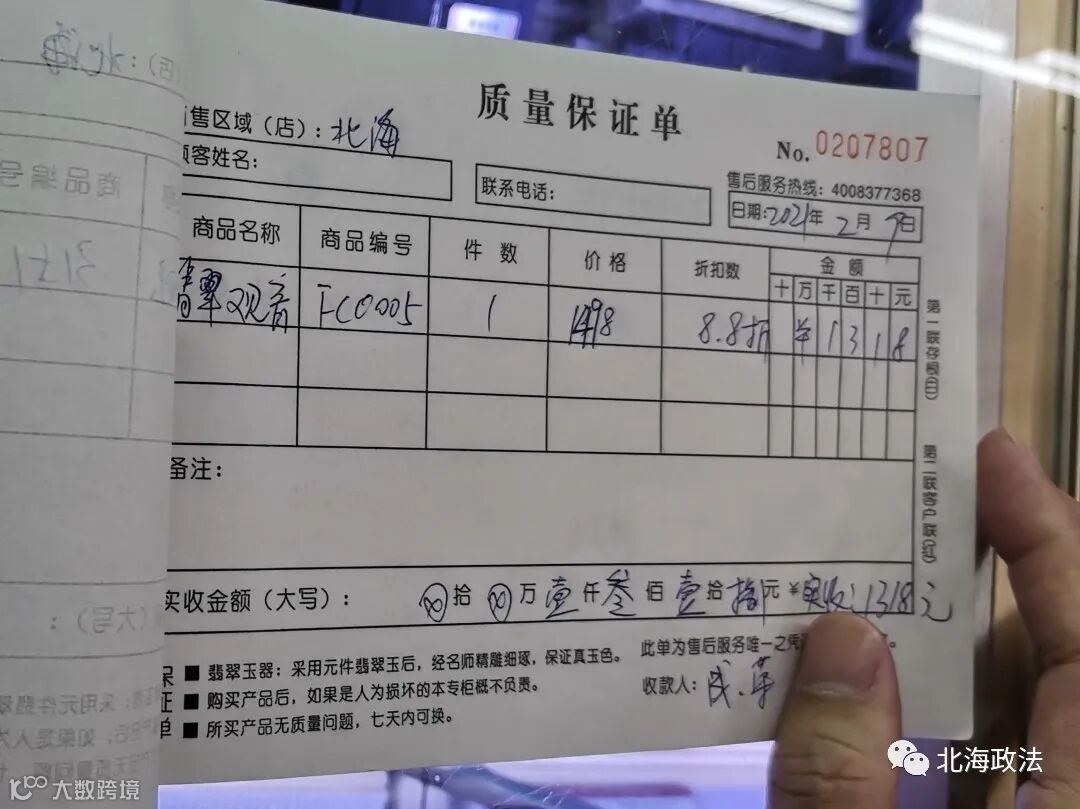 质量保证单
售区域（店）：北海
No.0207807
顾客姓名：
联系电话：
售后服务热线：4008377368
日期：2021年2月9日
商品名称 商品编号 件数 价格 折扣数 金额
十万千百十元
翡翠观音 FC0005 1 1498 8.8折 ¥1318
第一联存根(白)
第二联客户联(红)
备注：
实收金额（大写）： 拾 万壹仟叁佰壹拾捌元¥实收：1318元
保证单
■翡翠玉器：采用元件翡翠玉后，经名师精雕细琢，保证真玉色。
■购买产品后，如果是人为损坏的本专柜概不负责。
■所买产品无质量问题，七天内可换。
此单为售后服务唯一之凭
收款人：
商品编号
（大写）：
北海政法
大数跨境